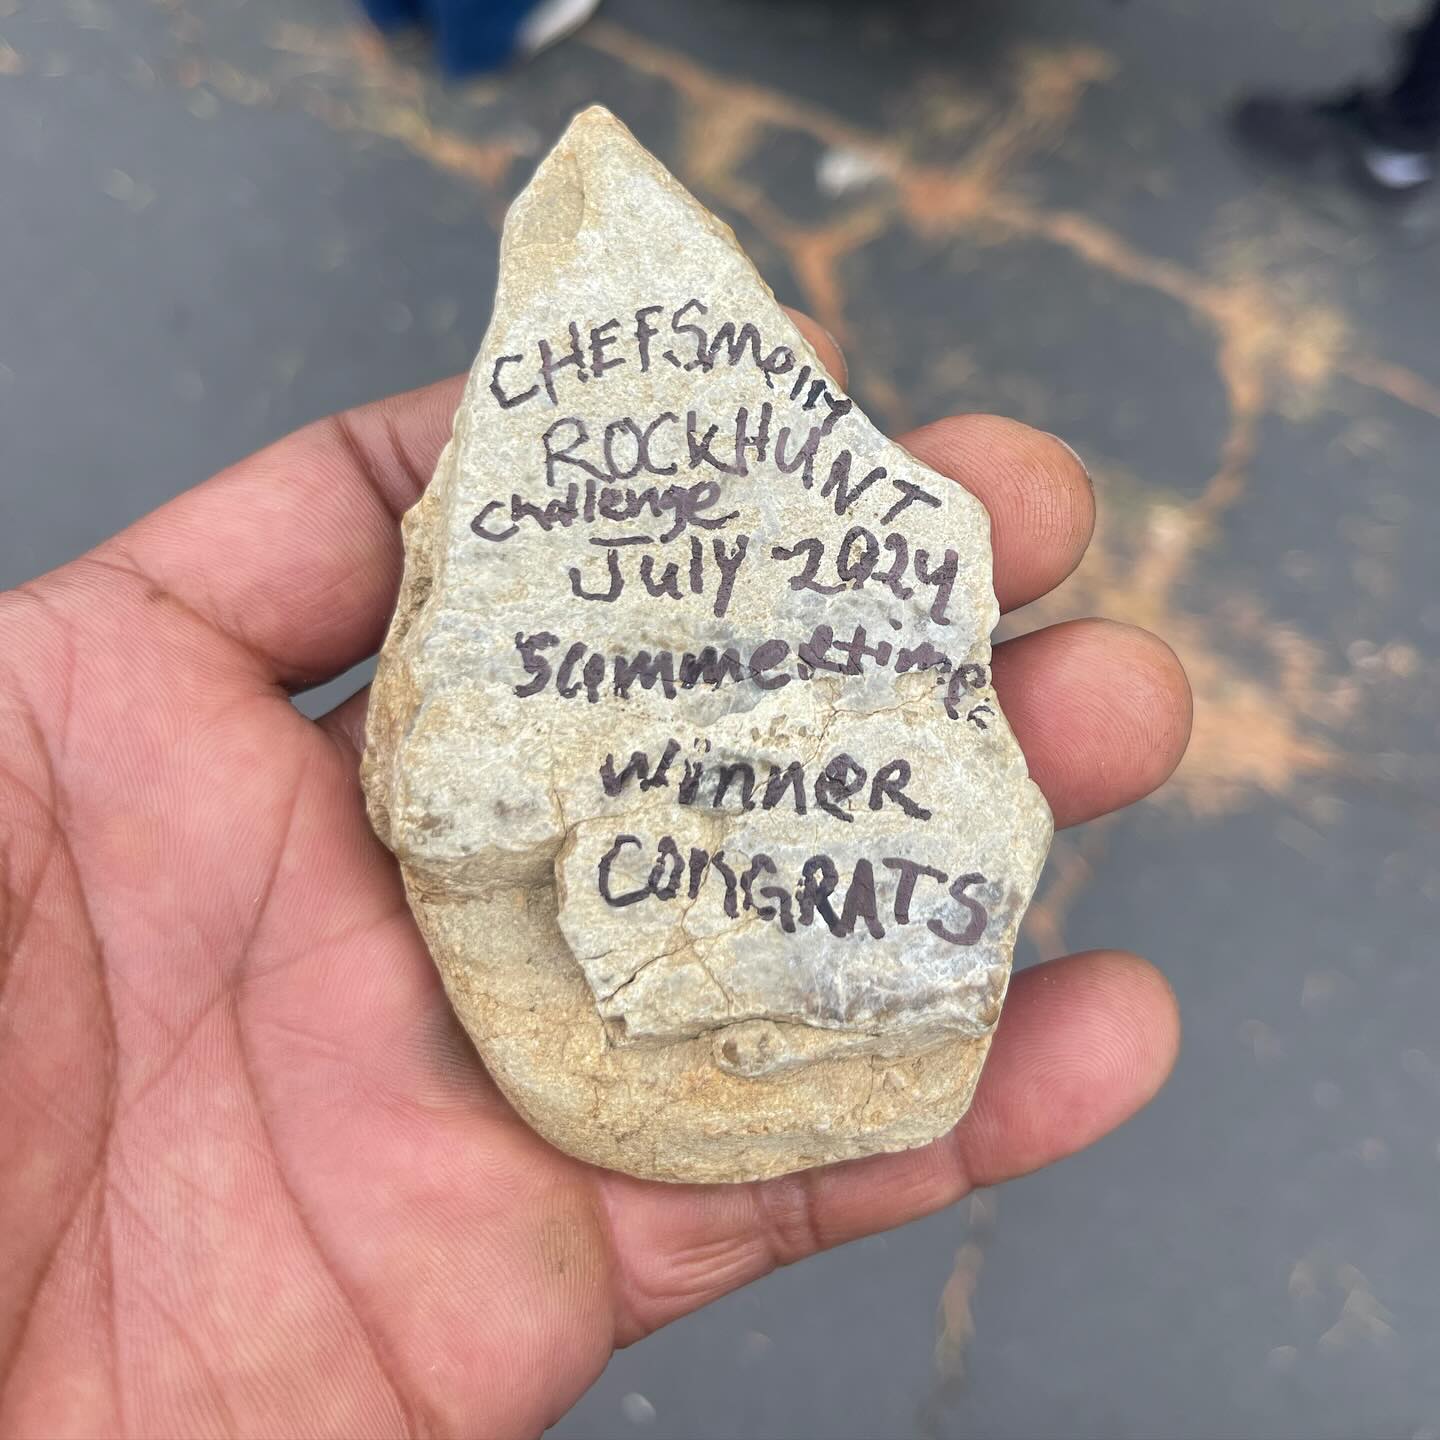 CHEFSmelly
ROCKHUNT
challenge
July 2024
Summertime
winnER
CONGRATS